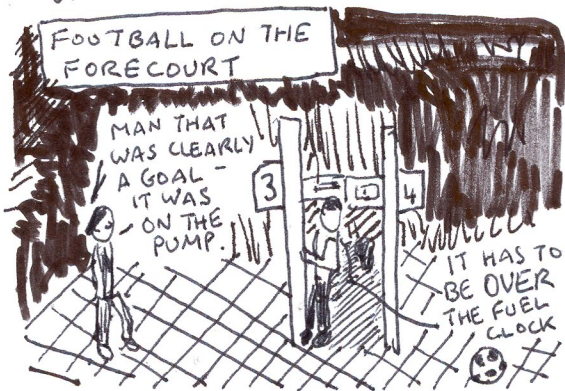 FOOTBALL ON THE
FORECOURT
MAN THAT
WAS CLEARLY
A GOAL -
IT WAS
ON THE
PUMP.
3
4
IT HAS TO
BE OVER
THE FUEL
CLOCK